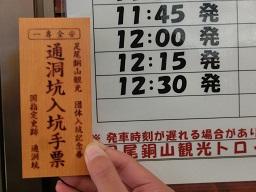 一専全安
足尾銅山観光 団体入坑記念券
通洞坑入坑手票
国指定史跡 通洞坑
11:45 発
12:00 発
12:15 発
12:30 発
※ 発車時刻が遅れる場合があり
足尾銅山観光トロッ